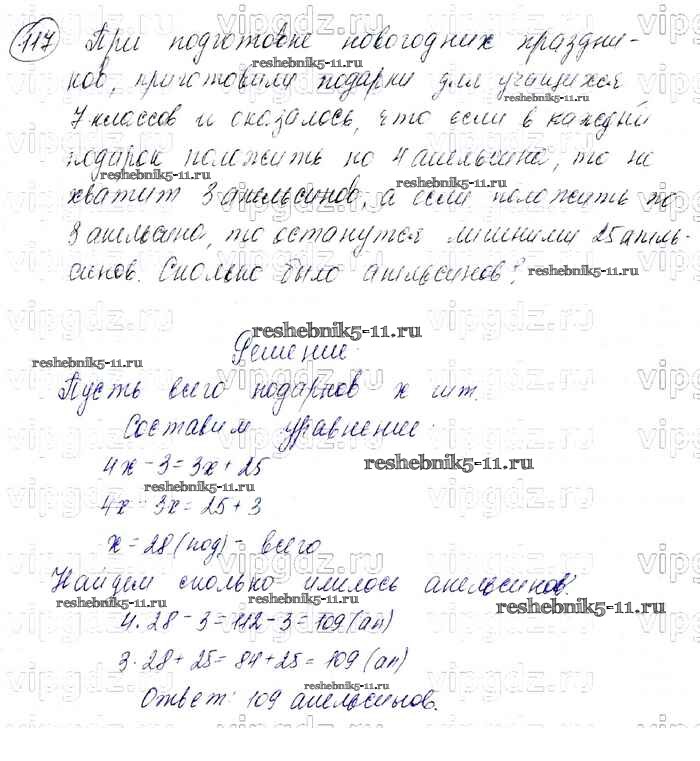 117 При подготовке новогодних праздни-
ков, приготовили подарки для учащихся
7 классов и оказалось, что если в каждый
подарок положить по 4 апельсина, то не
хватит 3 апельсинов, а если положить по
3 апельсина, то останутся лишними 25 апель-
синов. Сколько было апельсинов?
Решение.
Пусть всего подарков x шт.
Составим уравнение.
4x - 3 = 3x + 25
4x - 3x = 25 + 3
x = 28 (под) - всего
Найдем сколько имелось апельсинов:
4 · 28 - 3 = 112 - 3 = 109 (ап)
3 · 28 + 25 = 84 + 25 = 109 (ап)
Ответ: 109 апельсинов.
reshebnik5-11.ru
vipgdz.ru